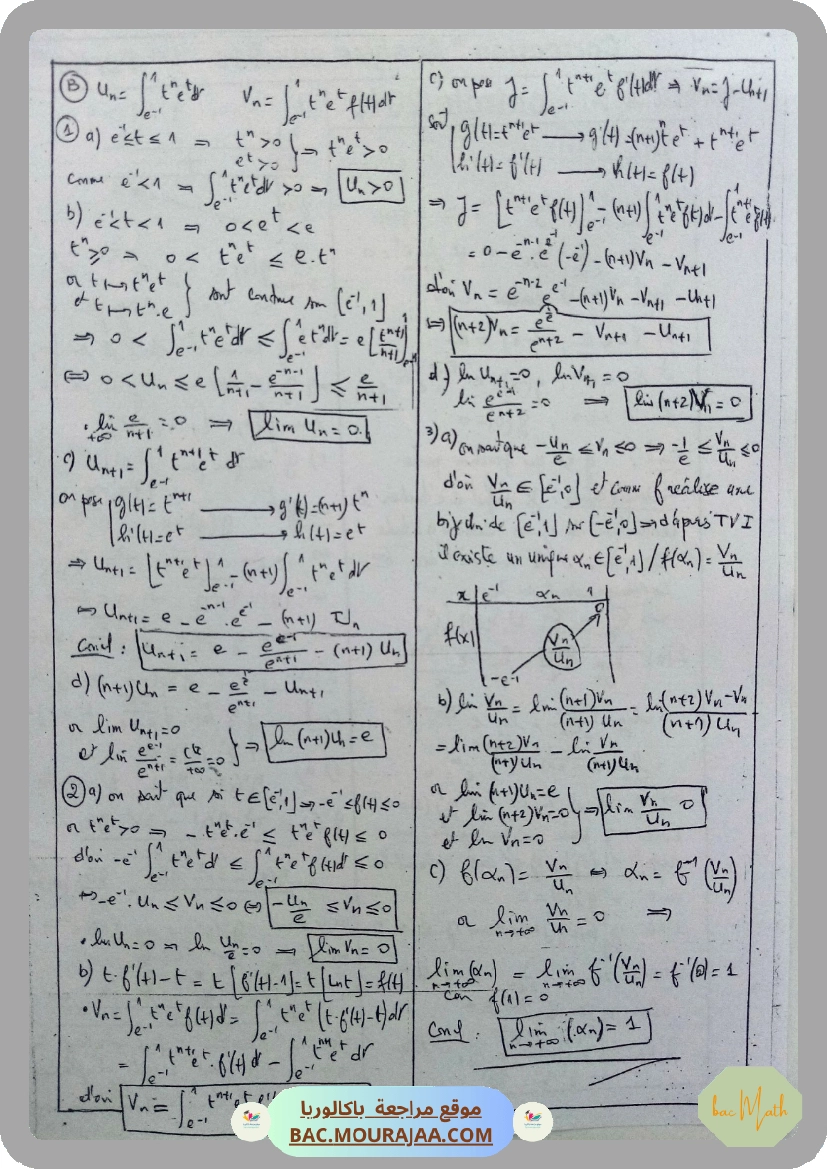 (B) Un = ∫_{e⁻¹}^{1} tⁿeᵗdt   Vn = ∫_{e⁻¹}^{1} tⁿeᵗ f(t)dt
① a) e⁻¹ ≤ t ≤ 1 ⇒ tⁿ>0
eᵗ>0 } ⇒ tⁿeᵗ>0
comme e⁻¹<1 ⇒ ∫_{e⁻¹}^{1} tⁿeᵗdt >0 ⇒ Un>0
b) e⁻¹<t<1 ⇒ 0<eᵗ<e
tⁿ≥0 ⇒ 0 < tⁿeᵗ ≤ e.tⁿ
or t⟼tⁿeᵗ
et t⟼tⁿ.e } sont continue sur [e⁻¹,1]
⇒ 0 < ∫_{e⁻¹}^{1} tⁿeᵗdt ≤ ∫_{e⁻¹}^{1} e tⁿdt = e [tⁿ⁺¹/(n+1)]_{e⁻¹}^{1}
⇔ 0<Un ≤ e [1/(n+1) - e⁻ⁿ⁻¹/(n+1)] ≤ e/(n+1)
. lim_{+∞} e/(n+1) = 0 ⇒ lim Un = 0.
c) Un+1 = ∫_{e⁻¹}^{1} tⁿ⁺¹eᵗ dt
on pose | g(t) = tⁿ⁺¹ ⟶ g'(t)=(n+1) tⁿ
| h'(t)=eᵗ ⟶ h(t)=eᵗ
⇒ Un+1 = [tⁿ⁺¹eᵗ]_{e⁻¹}^{1} - (n+1) ∫_{e⁻¹}^{1} tⁿeᵗ dt
⇔ Un+1 = e - e⁻ⁿ⁻¹.e^{e⁻¹} - (n+1) Un
Concl : Un+1 = e - e^{e⁻¹}/eⁿ⁺¹ - (n+1) Un
d) (n+1)Un = e - e^{1/e}/eⁿ⁺¹ - Un+1
or lim Un+1 = 0
et lim e^{e⁻¹}/eⁿ⁺¹ = cte/+∞ = 0 } ⇒ lim (n+1)Un = e
② a) on sait que si t ∈ [e⁻¹,1] ⇒ -e⁻¹ ≤ f(t) ≤ 0
or tⁿeᵗ>0 ⇒ - tⁿeᵗ.e⁻¹ ≤ tⁿeᵗ f(t) ≤ 0
d'où -e⁻¹ ∫_{e⁻¹}^{1} tⁿeᵗdt ≤ ∫_{e⁻¹}^{1} tⁿeᵗ f(t)dt ≤ 0
⇔ -e⁻¹.Un ≤ Vn ≤ 0 ⇔ -Un/e ≤ Vn ≤ 0
• lim Un=0 ⇒ lim Un/e = 0 ⇒ lim Vn = 0
b) t.f'(t) - t = t [f'(t)-1] = t [ln t] = f(t)
• Vn = ∫_{e⁻¹}^{1} tⁿeᵗ f(t)dt = ∫_{e⁻¹}^{1} tⁿeᵗ (t.f'(t)-t)dt
= ∫_{e⁻¹}^{1} tⁿ⁺¹eᵗ.f'(t)dt - ∫_{e⁻¹}^{1} tⁿ⁺¹eᵗ dt
d'où Vn = ∫_{e⁻¹}^{1} tⁿ⁺¹eᵗ
c) on pose J = ∫_{e⁻¹}^{1} tⁿ⁺¹eᵗ f'(t)dt ⇒ Vn = J - Un+1
soit | g(t)=tⁿ⁺¹eᵗ ⟶ g'(t)=(n+1)tⁿeᵗ + tⁿ⁺¹eᵗ
| h'(t)=f'(t) ⟶ h(t)=f(t)
⇒ J = [tⁿ⁺¹eᵗ f(t)]_{e⁻¹}^{1} - (n+1) ∫_{e⁻¹}^{1} tⁿeᵗ f(t)dt - ∫_{e⁻¹}^{1} tⁿ⁺¹eᵗ f(t)
= 0 - e⁻ⁿ⁻¹.e^{e⁻¹}(-e⁻¹) - (n+1)Vn - Vn+1
d'où Vn = e⁻ⁿ⁻² e^{e⁻¹} - (n+1)Vn - Vn+1 - Un+1
⇔ (n+2)Vn = e^{1/e}/eⁿ⁺² - Vn+1 - Un+1
d) lim Un+1 = 0 , lim Vn+1 = 0
lim e^{e⁻¹}/eⁿ⁺² = 0 ⇒ lim (n+2)Vn = 0
3) a) on sait que -Un/e ≤ Vn ≤ 0 ⇒ -1/e ≤ Vn/Un ≤ 0
d'où Vn/Un ∈ [-e⁻¹,0] et comme f réalise une
bijection de [e⁻¹,1] sur [-e⁻¹,0] ⇒ d'après TVI
il existe un unique αn ∈ [e⁻¹,1] / f(αn) = Vn/Un
x | e⁻¹ αn 1
f(x) | -e⁻¹ Vn/Un 0
b) lim Vn/Un = lim (n+1)Vn/(n+1)Un = lim (n+2)Vn-Vn/(n+1)Un
= lim (n+2)Vn/(n+1)Un - lim Vn/(n+1)Un
or lim (n+1)Un = e
et lim (n+2)Vn = 0
et lim Vn = 0 } ⇒ lim Vn/Un 0
c) f(αn) = Vn/Un ⇔ αn = f⁻¹(Vn/Un)
or lim_{n→+∞} Vn/Un = 0 ⇒
lim_{n→+∞} (αn) = lim_{n→+∞} f⁻¹(Vn/Un) = f⁻¹(0) = 1
car f(1) = 0
Concl : lim_{n→+∞} (αn) = 1
موقع مراجعة باكالوريا
BAC.MOURAJAA.COM
bac Math